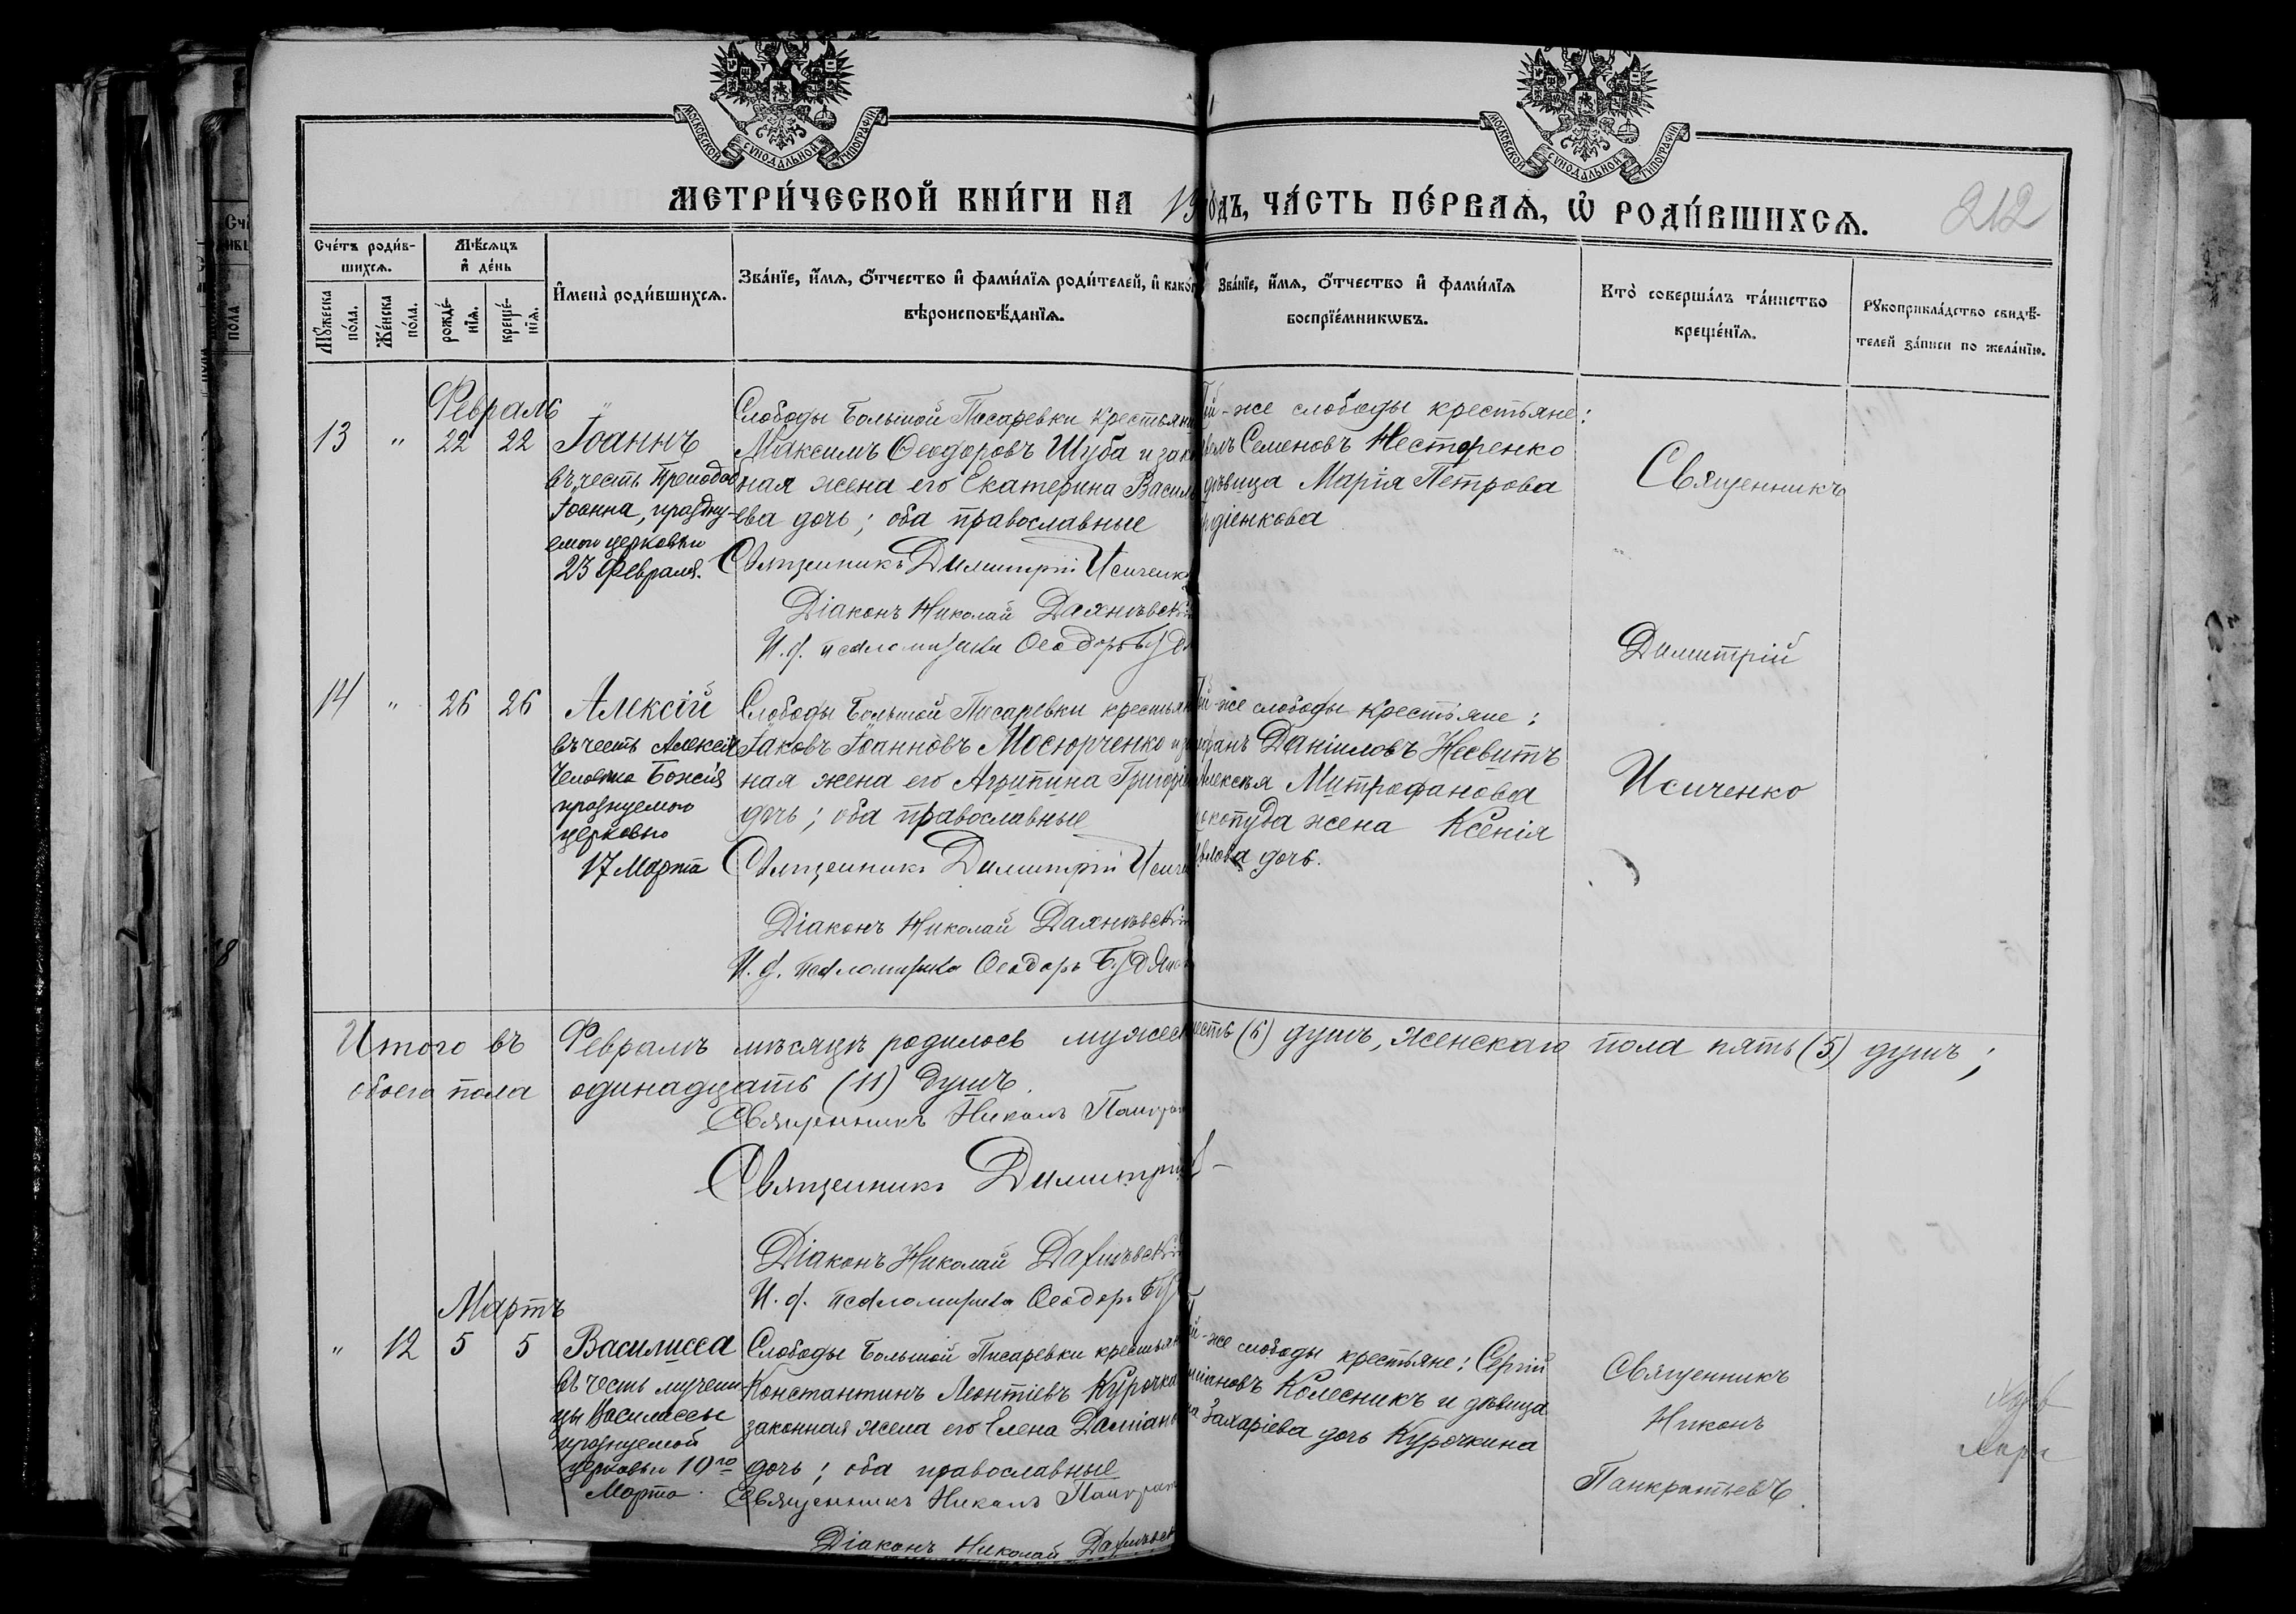 МОСКОВСКОЙ СѴНОДАЛЬНОЙ ТИПОГРАФІИ
МОСКОВСКОЙ СѴНОДАЛЬНОЙ ТИПОГРАФІИ
МЕТРИ́ЧЕСКОЙ КНИ́ГИ НА 19
ГОДЪ, ЧА́СТЬ ПЕ́РВАѦ, Ѡ РОДИ́ВШИХСѦ.
212
Сче́тъ роди́в-
шихсѧ.
Мѣ́сѧцъ
и҆ де́нь
Му́жеска
по́ла.
Же́нска
по́ла.
рожде́-
нїѧ.
креще́-
нїѧ.
И҆мена̀ роди́вшихсѧ.
Зва́нїе, и҆́мѧ, ѻ҆́тчество и҆ фами́лїѧ роди́телей, и҆ како́
вѣроисповѣ́данїѧ.
Зва́нїе, и҆́мѧ, ѻ҆́тчество и҆ фами́лїѧ
воспрїе́мникѡвъ.
Кто̀ соверша́лъ та́инство
креще́нїѧ.
Рꙋкоприкла́дство свидѣ́-
телей за́писи по жела́нїю.
Февраль
13 " 22 22 Іоаннъ
въ честь Преподоб
Іоанна, праздну-
емаго церковью
23 Февраля.
Слободы Большой Писаревки крестьянин
Максимъ Ѳеодоровъ Шуба и зако
ная жена его Екатерина Василь
ева дочь; оба православные
Священникъ Димитрій Исиченко
Діаконъ Николай
И. д. псаломщика Ѳеодоръ
й-же слободы крестьяне:
Семеновъ Нестеренко
дѣвица Марія Петрова
діенкова
Священникъ
Димитрій
Исиченко
14 " 26 26 Алексій
въ честь Алексія
Человѣка Божія
празднуемаго
церковью
17 Марта
Слободы Большой Писаревки крестьян
Іаковъ Іоанновъ Мосюрченко и з
ная жена его Агрипина Григорі
дочь; оба православные
Священникъ Димитрій Исиче
Діаконъ Николай
И. д. псаломщика Ѳеодоръ
й-же слободы крестьяне:
Даніиловъ Несвитъ
Алексѣя Митрофанова
жена Ксенія
дочь.
Итого въ Февралѣ мѣсяцѣ родилось мужеск
есть (6) душъ, женскаго пола пять (5) душъ;
обоего пола одинадцать (11) душъ.
Священникъ Никонъ Панкрат
Священникъ Димитрій
Діаконъ Николай
И. д. псаломщика Ѳеодоръ
Мартъ
" 12 5 5 Василисса
въ честь мучени
цы Василиссы
празднуемой
церковью 10го
Марта.
Слободы Большой Писаревки крестьян
Константинъ Леонтіевъ Курочка
законная жена его Елена Даміано
дочь; оба православные
Священникъ Никонъ Панкрат
Діаконъ Николай
й-же слободы крестьяне: Сергій
міановъ Колесникъ и дѣвица
на Захаріева дочь Курочкина
Священникъ
Никонъ
Панкратьевъ.